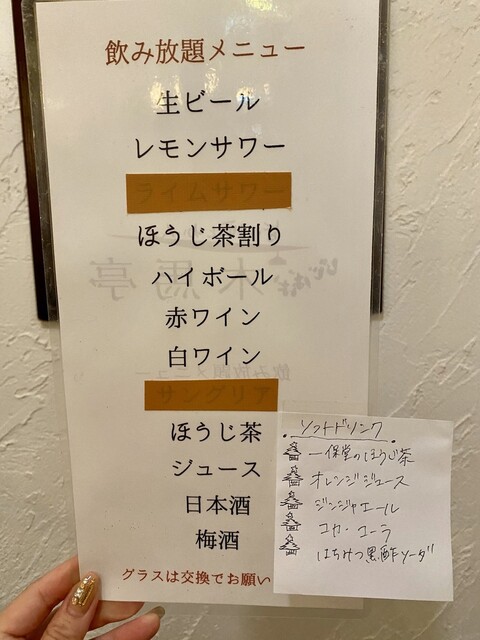 飲み放題メニュー
生ビール
レモンサワー
ライムサワー
ほうじ茶割り
ハイボール
赤ワイン
白ワイン
サングリア
ほうじ茶
ジュース
日本酒
梅酒
グラスは交換でお願い
・ソフトドリンク・
一保堂のほうじ茶
オレンジジュース
ジンジャエール
コカ・コーラ
はちみつ黒酢ソーダ